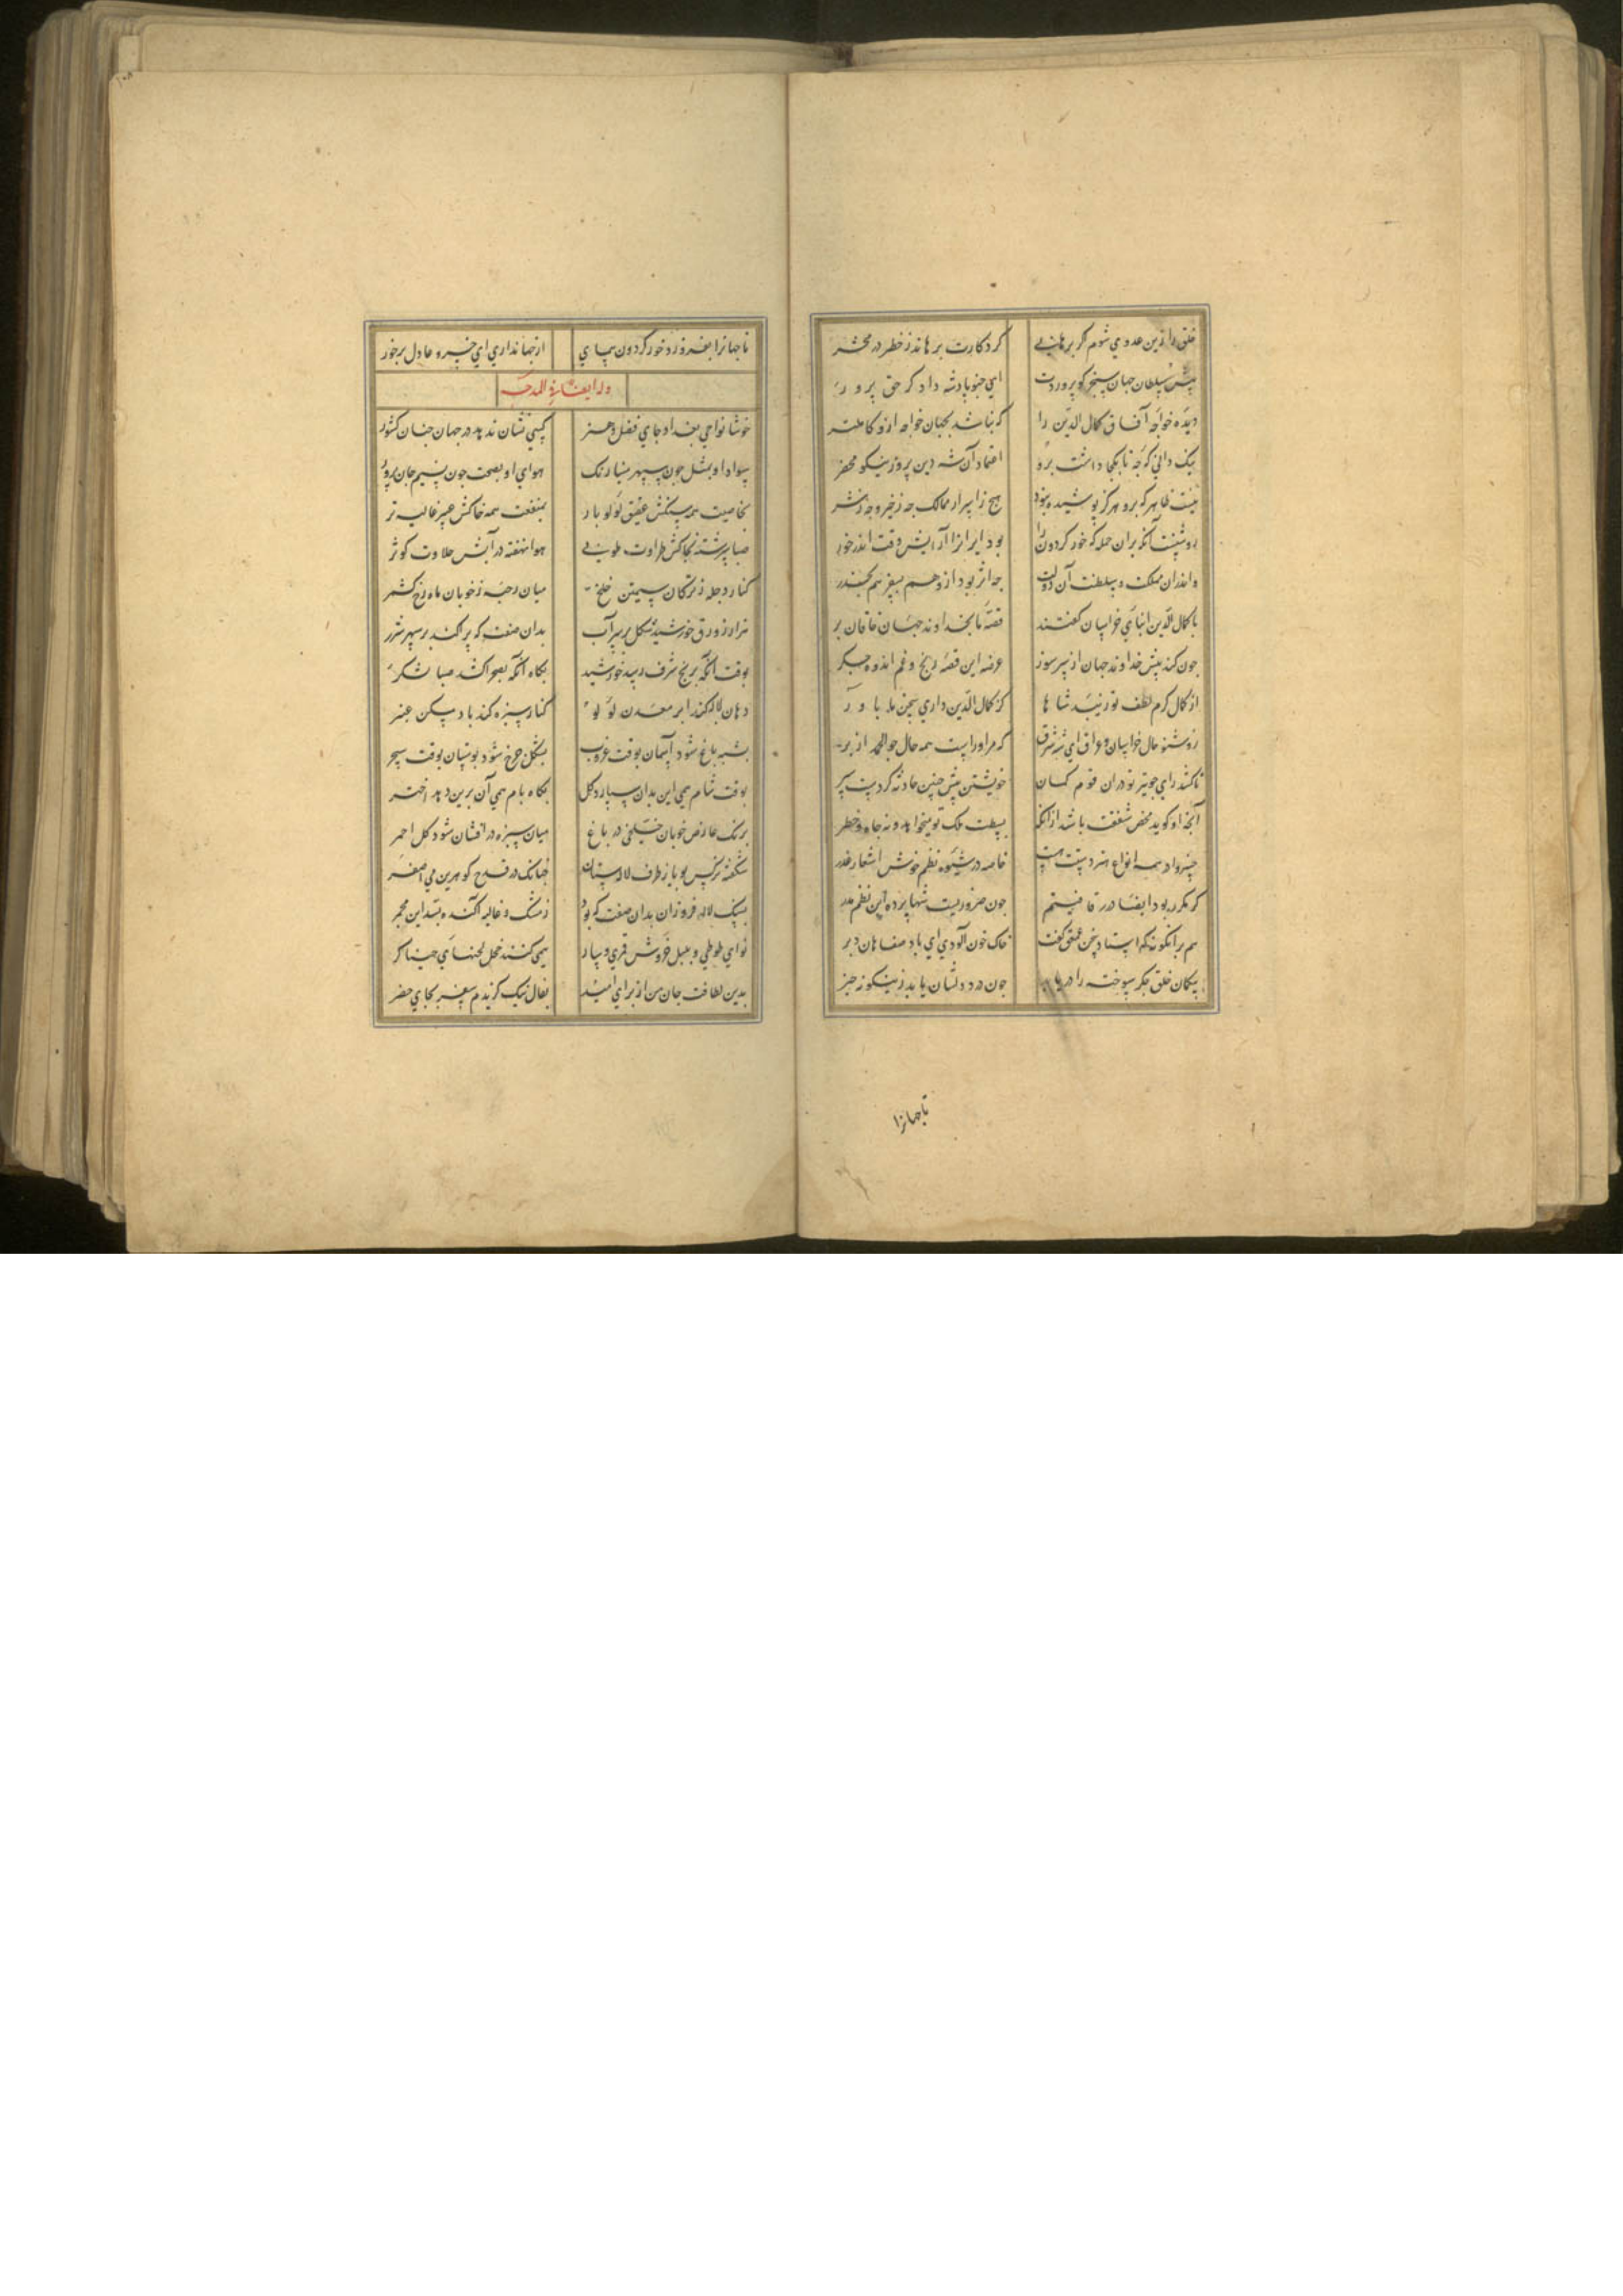 خلق را زین عدوی شوم کر برهانی کردکارت برهاند ز خطر در محشر
پیش سلطان جهان سنجر کو پروردت ای جنو پادشه داد کر حق پرور
دیده خواجه آفاق کمال الدین را که نباشد بجهان خواجه ازو کاملتر
نیک دانی که چه تا بکجا داشت برو اعتماد آن شه دین پرور نیکو محضر
هست ظاهر که برو هرکز پوشیده نبود هیچ ز اسرار ممالک چه ز خیر و چه ز شر
روشنست آنکه بران جمله که خور کردون را بود ایرانرا آرایش وقت اندر خور
و اندران مملکت و سلطنت آن دولت چه اثر بود ازو هم بسفر هم بحضر
با کمال الدین ابنای خراسان کفتند قصه ما بخداوند جهان خاقان بر
چون کند پیش خداوند جهان از سر سوز عرضه این قصه رنج و غم اندوه جکر
از کمال کرم لطف تو زیبد شاها کز کمال الدین داری سخن ما باور
زو شنو حال خراسان و عراق ای شه شرق که مر او راست همه حال چو الحمد از بر
تا کشد رای چو تیر تو دران قوم کمان خویشتن پیش چنین حادثه کردست سپر
آنچه او کوید محض شفقت باشد ازانکه بسطت ملک تو میخواهد و نه جاه و خطر
خسروا در همه انواع هنر دستت هست خاصه در شیوه نظم خوش اشعار غرر
کر مکرر بود ایطا در قافیتم چون ضروریست شها پرده این نظم مدر
هم برانکونه که استاد سخن عمعق کفت خاک خون آلود ای باد صفاهان بر
بیکمان خلق جکر سوخته را دریابد چون ز درد دلشان یابد زینکونه خبر
تا جهانرا
تا جهانرا بفروزد خور کردون پیمای از جهانداری ای خسرو عادل برخور
وله ایضا فی المدحه
خوشا نواحی بغداد جای فضل و هنر کسی نشان ندهد در جهان چنان کشور
سواد او بمثل چون سپهر مینا رنک هوای او بصفت چون نسیم جان پرور
بخاصیت همه سنکش عقیق لولو بار بمنفعت همه خاکش عبیر غالیه تر
صبا سرشته بخاکش طراوت طوبی هوا نهفته در آبش حلاوت کوثر
کنار دجله ز ترکان سیمتن خلخ میان رحبه ز خوبان ماه رخ کشمر
هزار زورق خورشید شکل بر سر آب بدان صفت که پراکند بر سپهر شرر
بوقت آنکه ببرج شرف رسد خورشید بکاه آنکه بصحرا کشد صبا لشکر
دهان لاله کند ابر معدن لؤلؤ کنار سبزه کند باد مسکن عنبر
بشبه باغ شود آسمان بوقت غروب بشکل چرخ شود بوستان بوقت سحر
بوقت شام همی این بدان سپارد کل بکاه بام همی آن برین دهد اختر
برنک عارض خوبان خلخی در باغ میان سبزه درافشان شود کل احمر
شکفته نرکس بویا بطرف لالستان چنانک در قدح کوهرین می اصفر
بسنک لاله فروزان بدان صفت که بود ز مشک و غالیه آکنده بسدین مجمر
نوای طوطی و بلبل خروش قمری و سار همی کنند خجل لحنهای خنیاکر
بدین لطافت جای من از برای امید بفال نیک کزیدم سفر بجای حضر